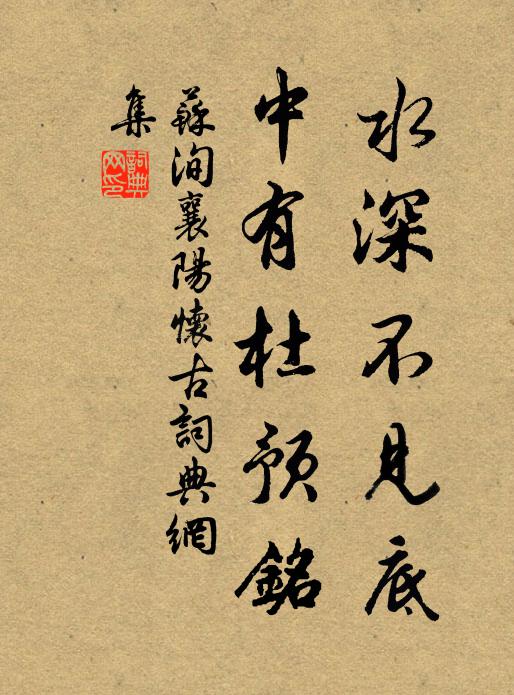 水深不見底
中有杜預銘
蘇洵襄陽懷古詞典網
集
詞典
网印